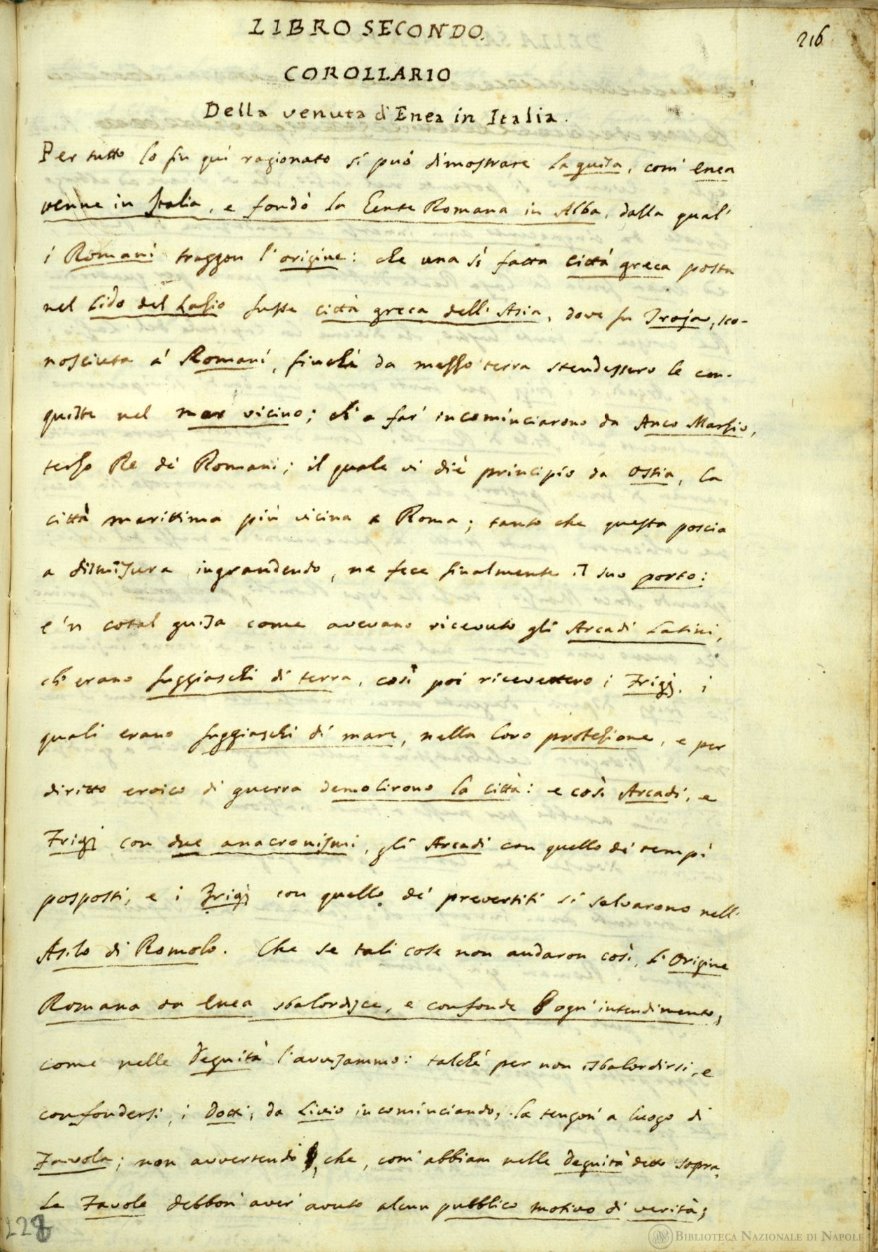 LIBRO SECONDO.
216
COROLLARIO
Della venuta d'Enea in Italia.
Per tutto lo fin quì ragionato si può dimostrare la guisa, com' Enea
venne in Italia, e fondò la Gente Romana in Alba, dalla qual'
i Romani traggon l'origine: che una sì fatta città greca posta
nel Lido del Lazio fusse città greca dell'Asia, dove fu Troja, sco-
nosciuta a' Romani, finchè da mezzo terra stendessero le con-
quiste nel mar vicino; ch'a far' incominciarono da Anco Marzio,
terzo Re dei Romani; il quale vi diè principio da Ostia, la
città marittima più vicina a Roma; tanto che questa poscia
a dismisura ingrandendo, ne fece finalmente il suo porto:
e 'n cotal guisa come avevano ricevuto gli Arcadi Latini,
ch'erano fuggiaschi di terra, così poi ricevettero i Frigj, i
quali erano fuggiaschi di mare, nella loro protezione, e per
diritto eroico di guerra demolirono la città: e così Arcadi, e
Frigj con due anacronismi, gli Arcadi con quello de' tempi
posposti, e i Frigj con quello de' prevertiti si salvarono nell'
Asilo di Romolo. Che se tali cose non andaron così, l'Origine
Romana da Enea sbalordisce, e confonde ogn' intendimento,
come nelle Degnità l'avvisammo: talchè per non isbalordirsi, e
confondersi, i Dotti, da Livio incominciando, la tengon' a luogo di
Favola; non avvertendo, che, com' abbiam nelle Degnità detto sopra,
le Favole debbon' aver' avuto alcun pubblico motivo di verità;
228
BIBLIOTECA NAZIONALE DI NAPOLI